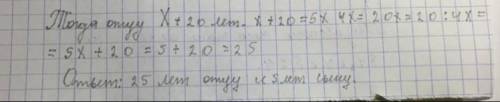 Тогда отцу X + 20 лет. x + 20 = 5x 4x = 20x = 20 : 4x =
= 5x + 20 = 5 + 20 = 25
Ответ: 25 лет отцу и 5 лет сыну.